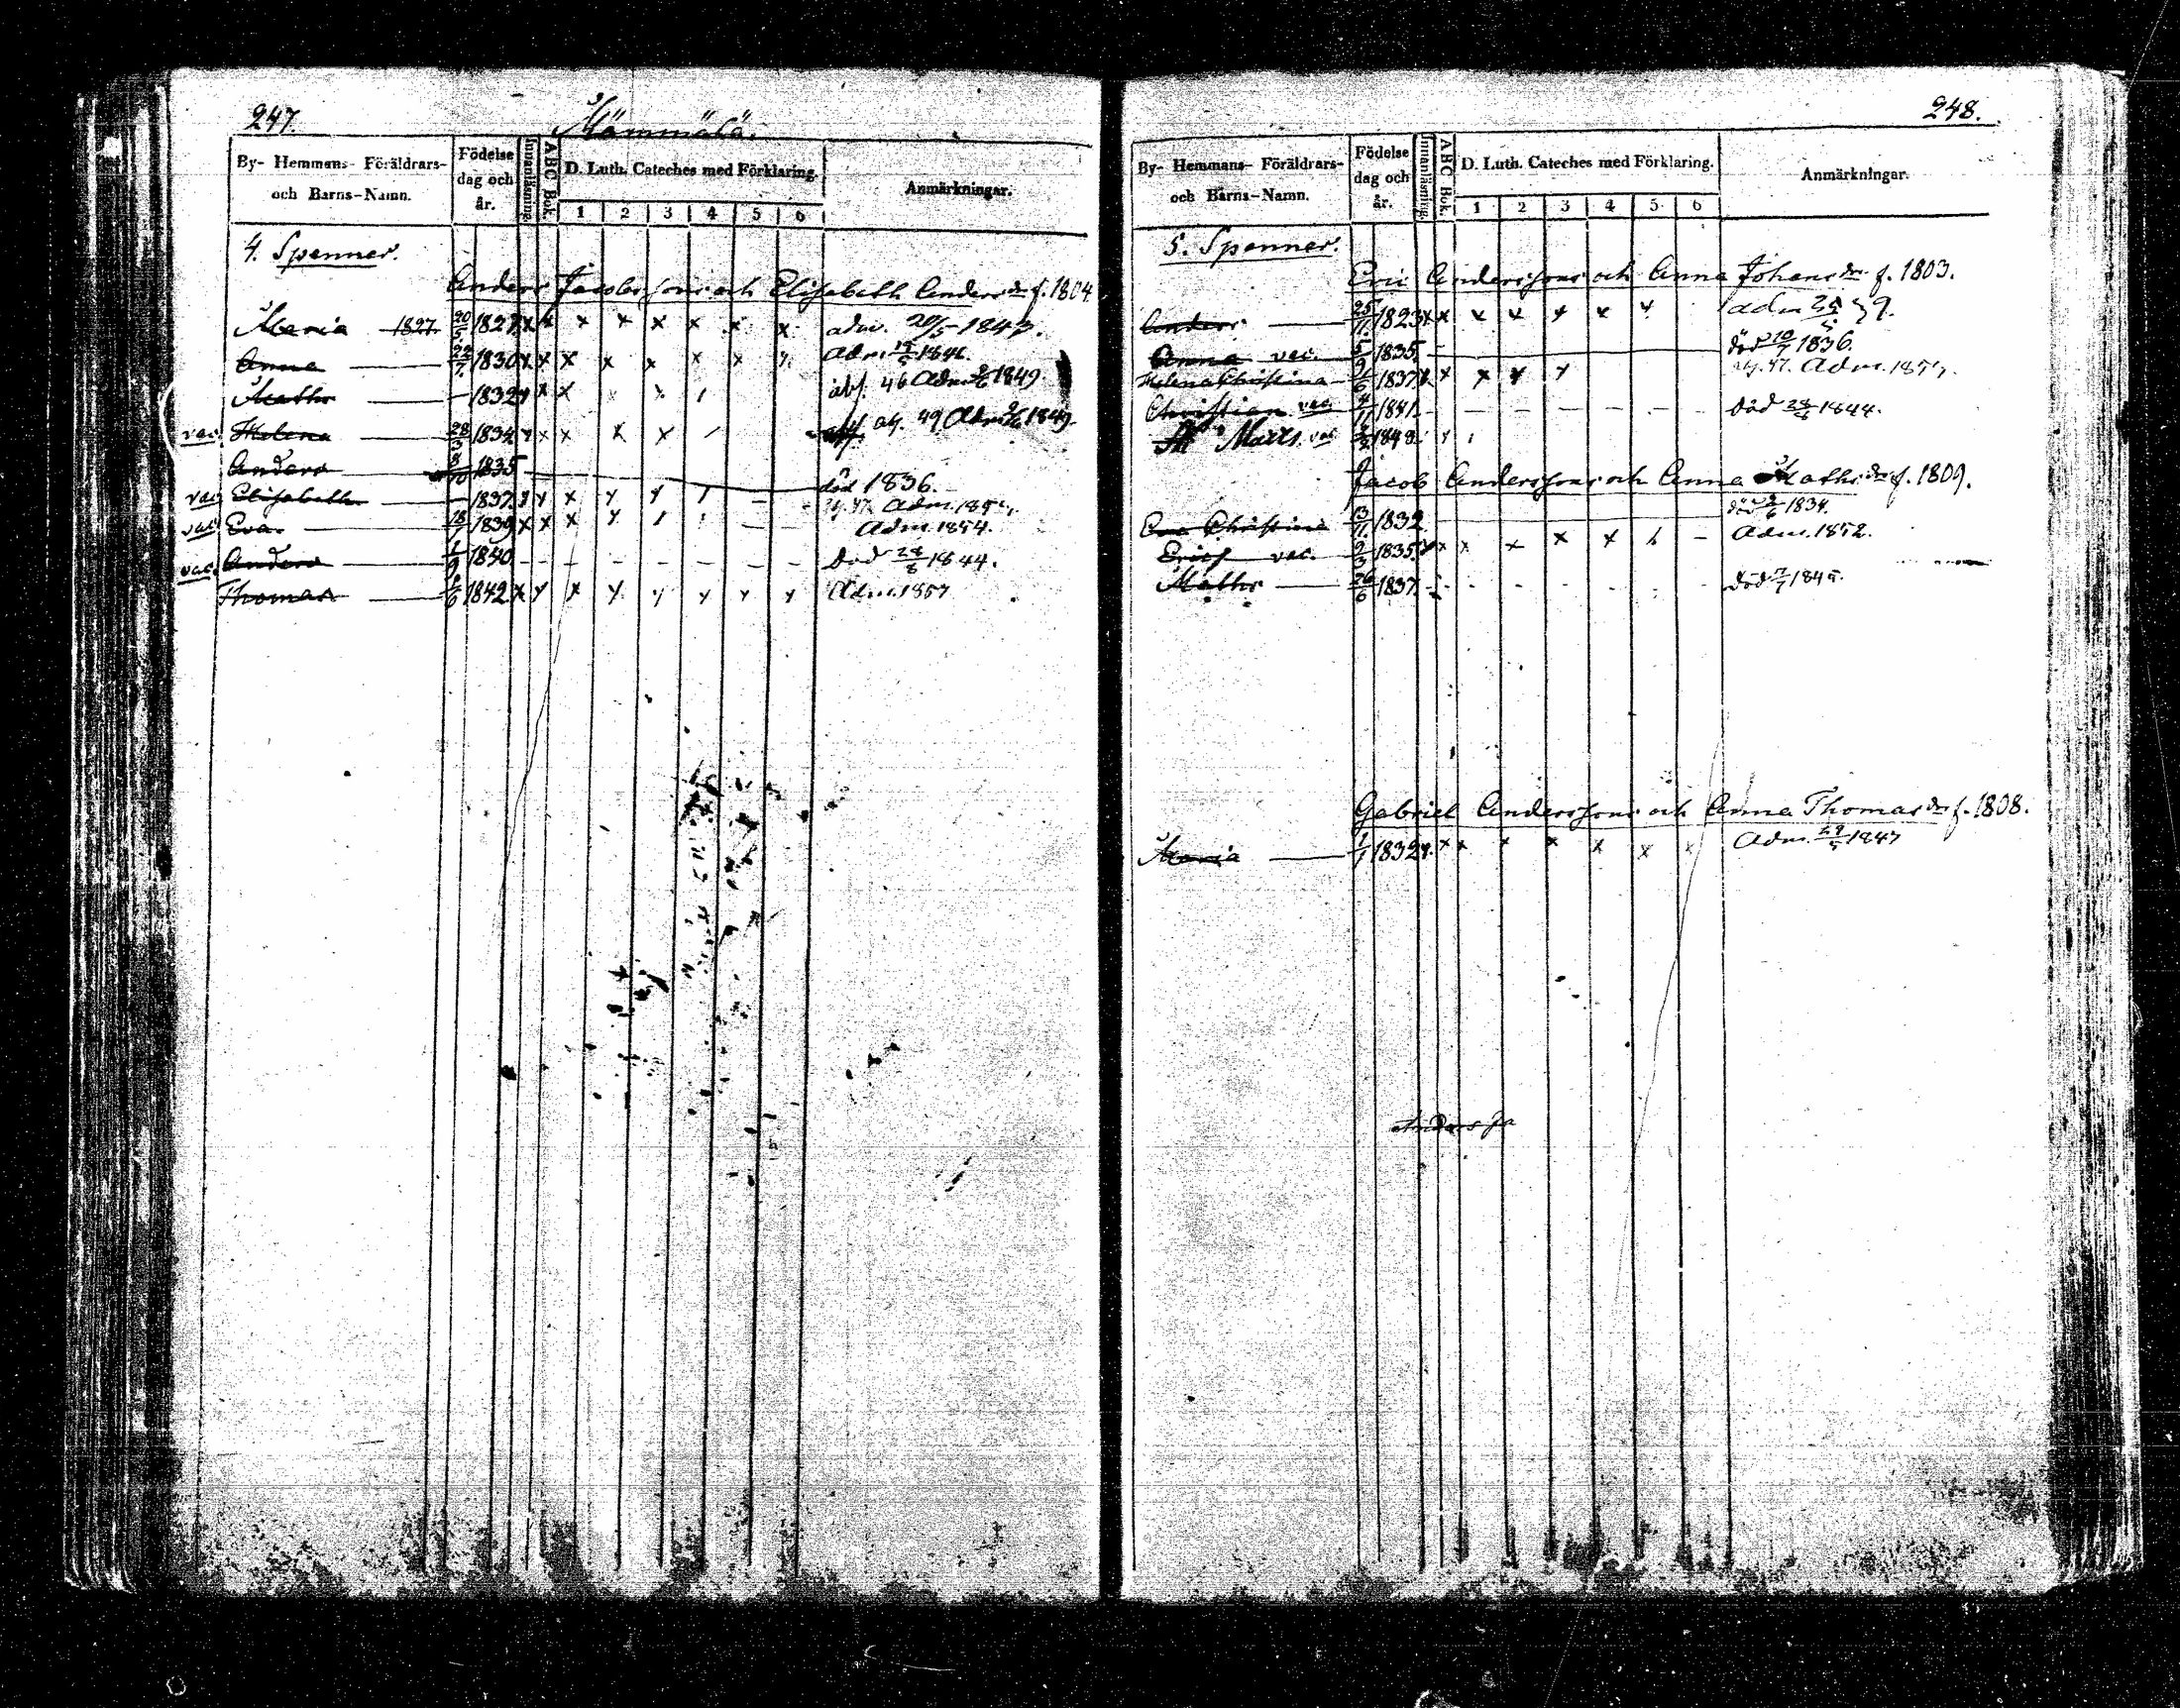 247.
Mämmälä.
By- Hemmans- Föräldrars- och Barns-Namn.
Födelse dag och år.
Innanläsning.
ABC Bok.
D. Luth. Cateches med Förklaring.
Anmärkningar.
1 2 3 4 5 6
4. Spenner.
Anders Jacobssons och Elisabeth Andersdr f. 1804
Maria 1827. 20/5 1827 x x x x x x x x adm. 20/5 1843.
Anna 29/7 1830 x x x x x x x Adm. 1846.
Maths 1832 x x x 46 Adm 1849.
vac Helena 28/3 1834 x x x x 49 Adm 1849.
Anders 1835 död 1836.
vac Elisabeth 1837 x 47. Adm.
vac Eva 18/7 1839 x x x Adm. 1854.
vac. Anders 1/9 1840 - - - - - - död 28/8 1844.
Thomas 6 1842 x x Adm. 1857
248.
By- Hemmans- Föräldrars- och Barns-Namn.
Födelse dag och år.
Innanläsning.
ABC Bok.
D. Luth. Cateches med Förklaring.
Anmärkningar.
1 2 3 4 5 6
5. Spenner.
Eric Anderssons och Anna Johansdr f. 1803.
Anders 25/11 1823 x x x x x x x adm 39.
Anna vac. 1835. död 10/7 1836.
Helena Christina 9/6 1837 x x x x 47. Adm.
Christian vac. 4/11 1841. - - - - - - död 28/8 1844.
Matts. vac
Jacob Anderssons och Anna Mathsdr f. 1809.
Eva Christina 13/11 1832 död 1834.
Erich vac. 9/3 1835 x x x x x x - Adm. 1852.
Maths 26/6 1837 - - - - - - död 7/7 1845.
Gabriel Anderssons och Anna Thomasdr f. 1808.
Maria 1/1 1832 x x x x x x x Adm. 1847
Anders Ja